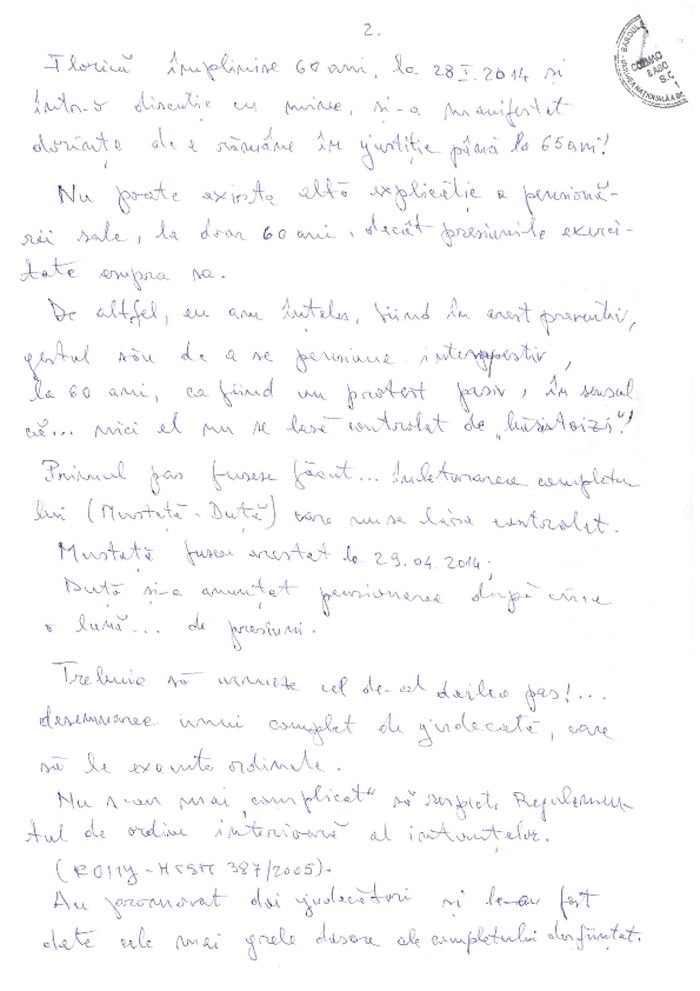 2.
Florică împlinise 60 ani, la 28 I. 2014 și
într-o discuție cu mine, și-a manifestat
dorința de a rămâne în justiție până la 65 ani!
Nu poate exista altă explicație a pensionă-
rii sale, la doar 60 ani, decât presiunile exerci-
tate asupra sa.
De altfel, eu am înțeles, fiind în arest preventiv,
gestul său de a se pensiona intempestiv,
la 60 ani, ca fiind un protest pasiv, în sensul
că... nici el nu se lasă controlat de „băsistoizi”!
Primul pas fusese făcut... înlăturarea completu-
lui (Mustață - Duță) care nu se lăsa controlat.
Mustață fusese arestat la 29.04.2014;
Duță și-a anunțat pensionarea după circa
o lună... de presiuni.
Trebuia să urmeze cel de-al doilea pas!...
desemnarea unui complet de judecată, care
să le execute ordinele.
Nu s-au mai „complicat” să respecte Regulamen-
tul de ordine interioară al instanțelor.
(ROIIJ - HCSM 387/2005).
Au promovat doi judecători și le-au fost
date cele mai grele dosare ale completului desființat.
BAROUL
COSMAG
& ASOC
S.C.
UNIUNEA NAȚIONALĂ A